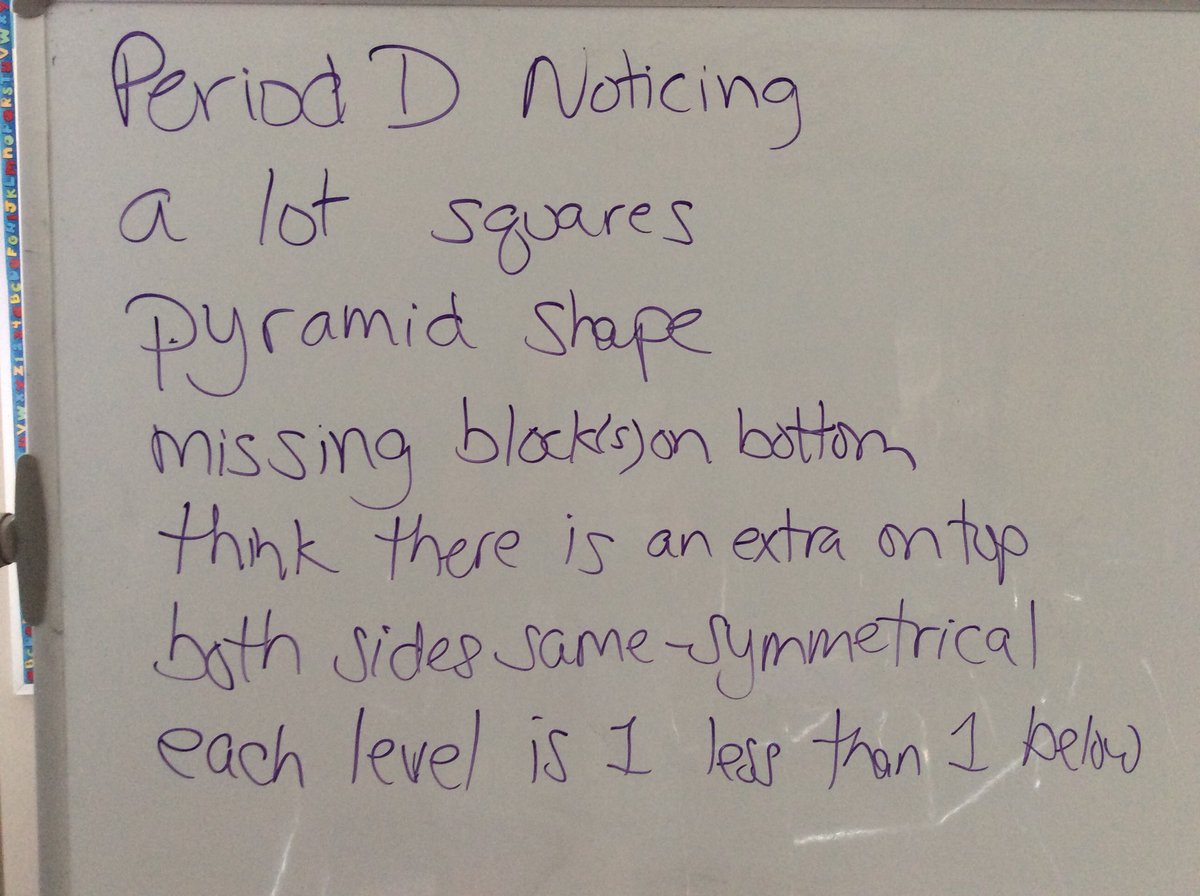 Period D Noticing
a lot squares
pyramid shape
missing block(s) on bottom
think there is an extra on top
both sides same - symmetrical
each level is 1 less than 1 below